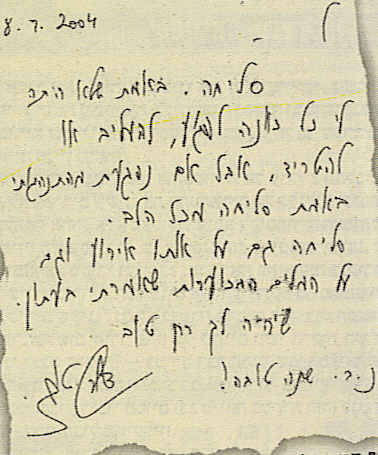 8.7.2004
ל -
סליחה. באמת שלא היתה
לי כל כוונה לפגוע, להעליב או
להטריד, אבל אם נפגעת מהתנהגותי
באמת סליחה מכל הלב.
סליחה גם על אותו אירוע וגם
על המלים המכוערות שאמרתי בעתון.
שיהיה לך רק טוב
נ.ב. שנה טובה!